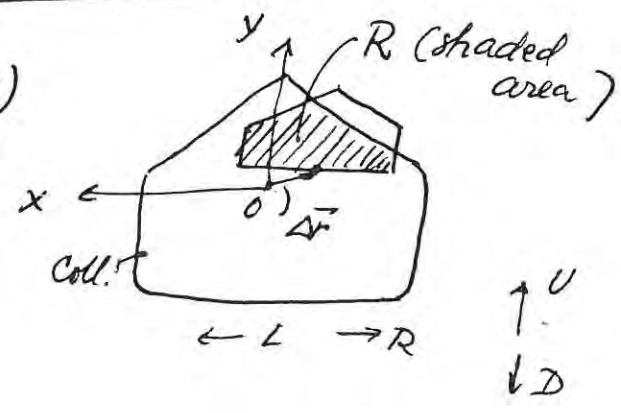 )
y
R (shaded
area)
x
O
Δr⃗
Coll.
← L → R
U
D